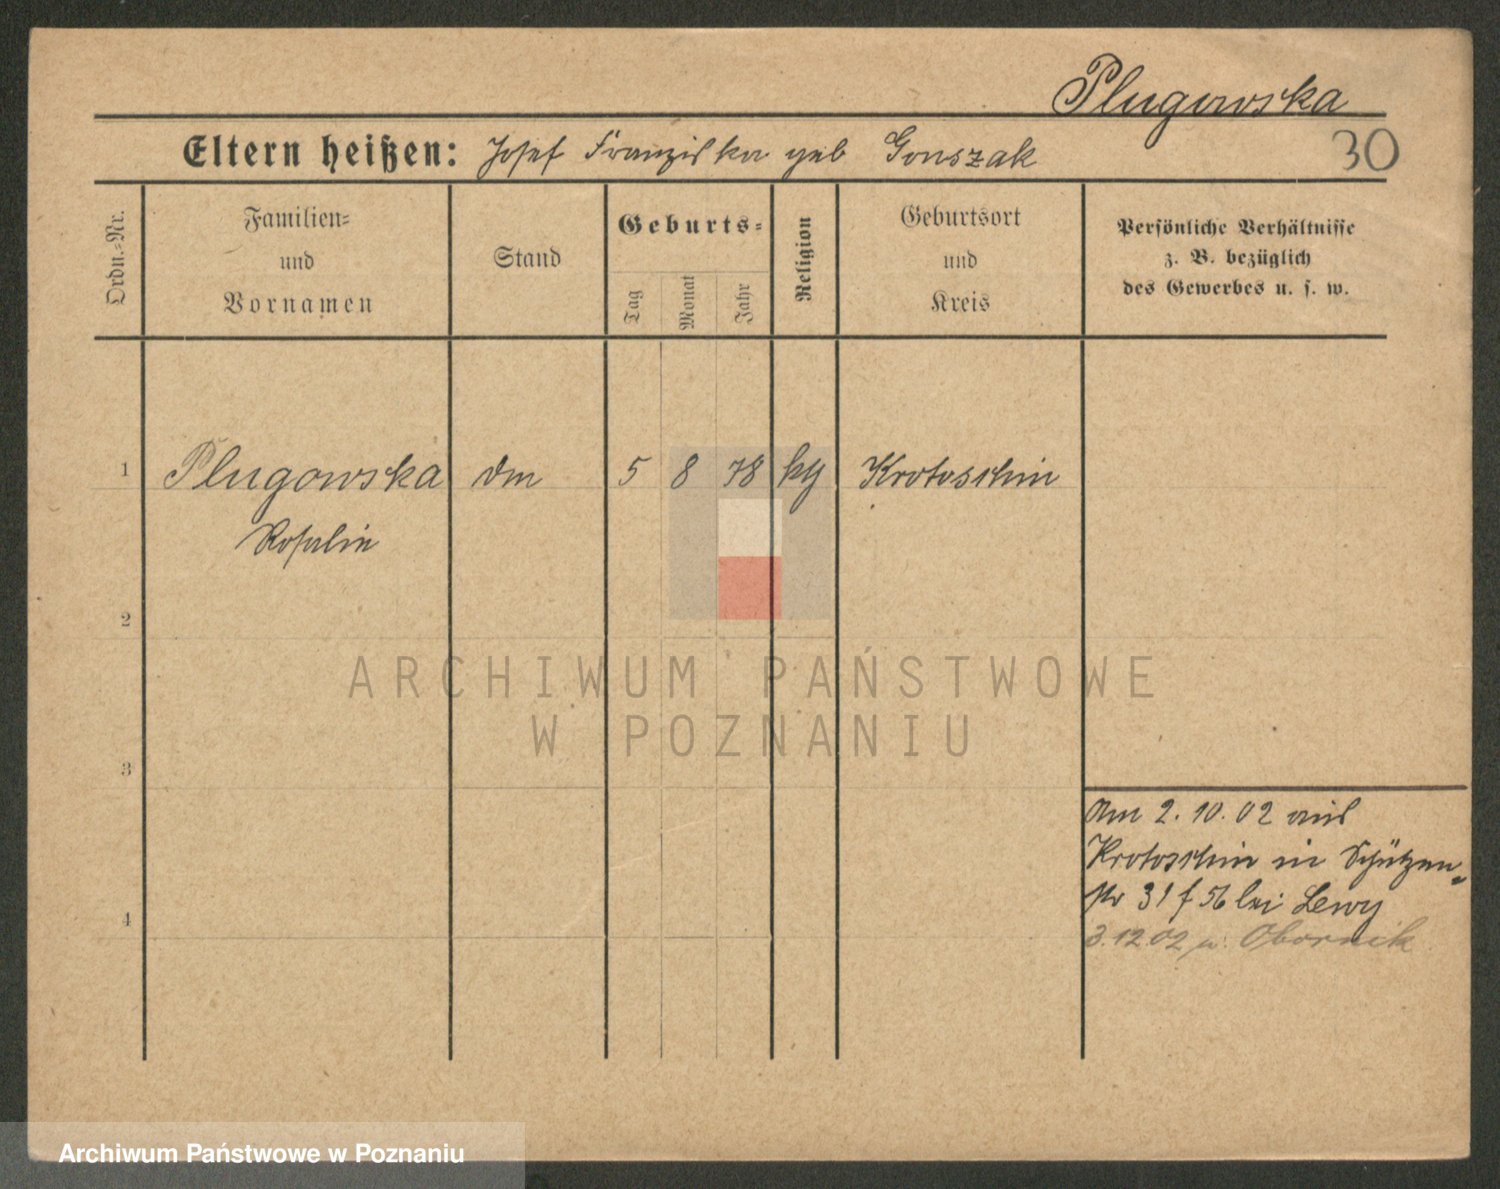 Plugowska
Eltern heißen: Josef Franziska geb Gonszak
30
Ordn.-Nr.
Familien-
und
Vornamen
Stand
Geburts-
Tag
Monat
Jahr
Religion
Geburtsort
und
Kreis
Persönliche Verhältnisse
z. B. bezüglich
des Gewerbes u. s. w.
1 Plugowska Dm 5 8 78 kg Krotoschin
Rosalie
2
ARCHIWUM PAŃSTWOWE
W POZNANIU
3
Am 2. 10. 02 aus
Krotoschin in Schützen-
str 31 f 56 bei Lewy
4
3. 12. 02 n. Obornik
Archiwum Państwowe w Poznaniu